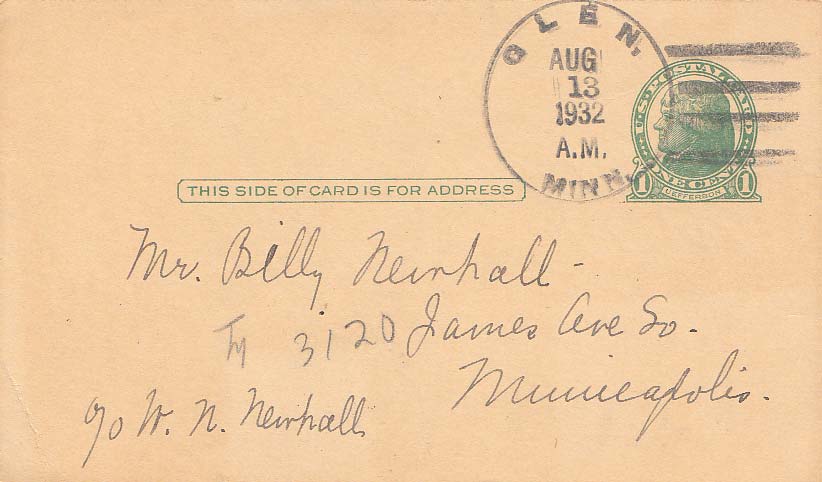 GLEN,
AUG
13
1932
A.M.
MINN.
U.S. POSTAL CARD
1 ONE CENT 1
JEFFERSON
THIS SIDE OF CARD IS FOR ADDRESS
Mr. Billy Newhall -
3120 James Ave So.
Minneapolis.
c/o W. N. Newhall